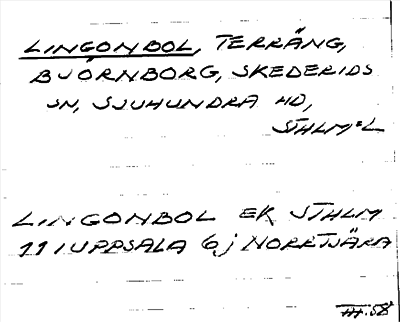 LINGONBOL, TERRÄNG,
BJÖRNBORG, SKEDERIDS
SN, SJUHUNDRA HD,
STHLM=L
LINGONBOL EK STHLM
11 I UPPSALA 6j NORRTJÄRA